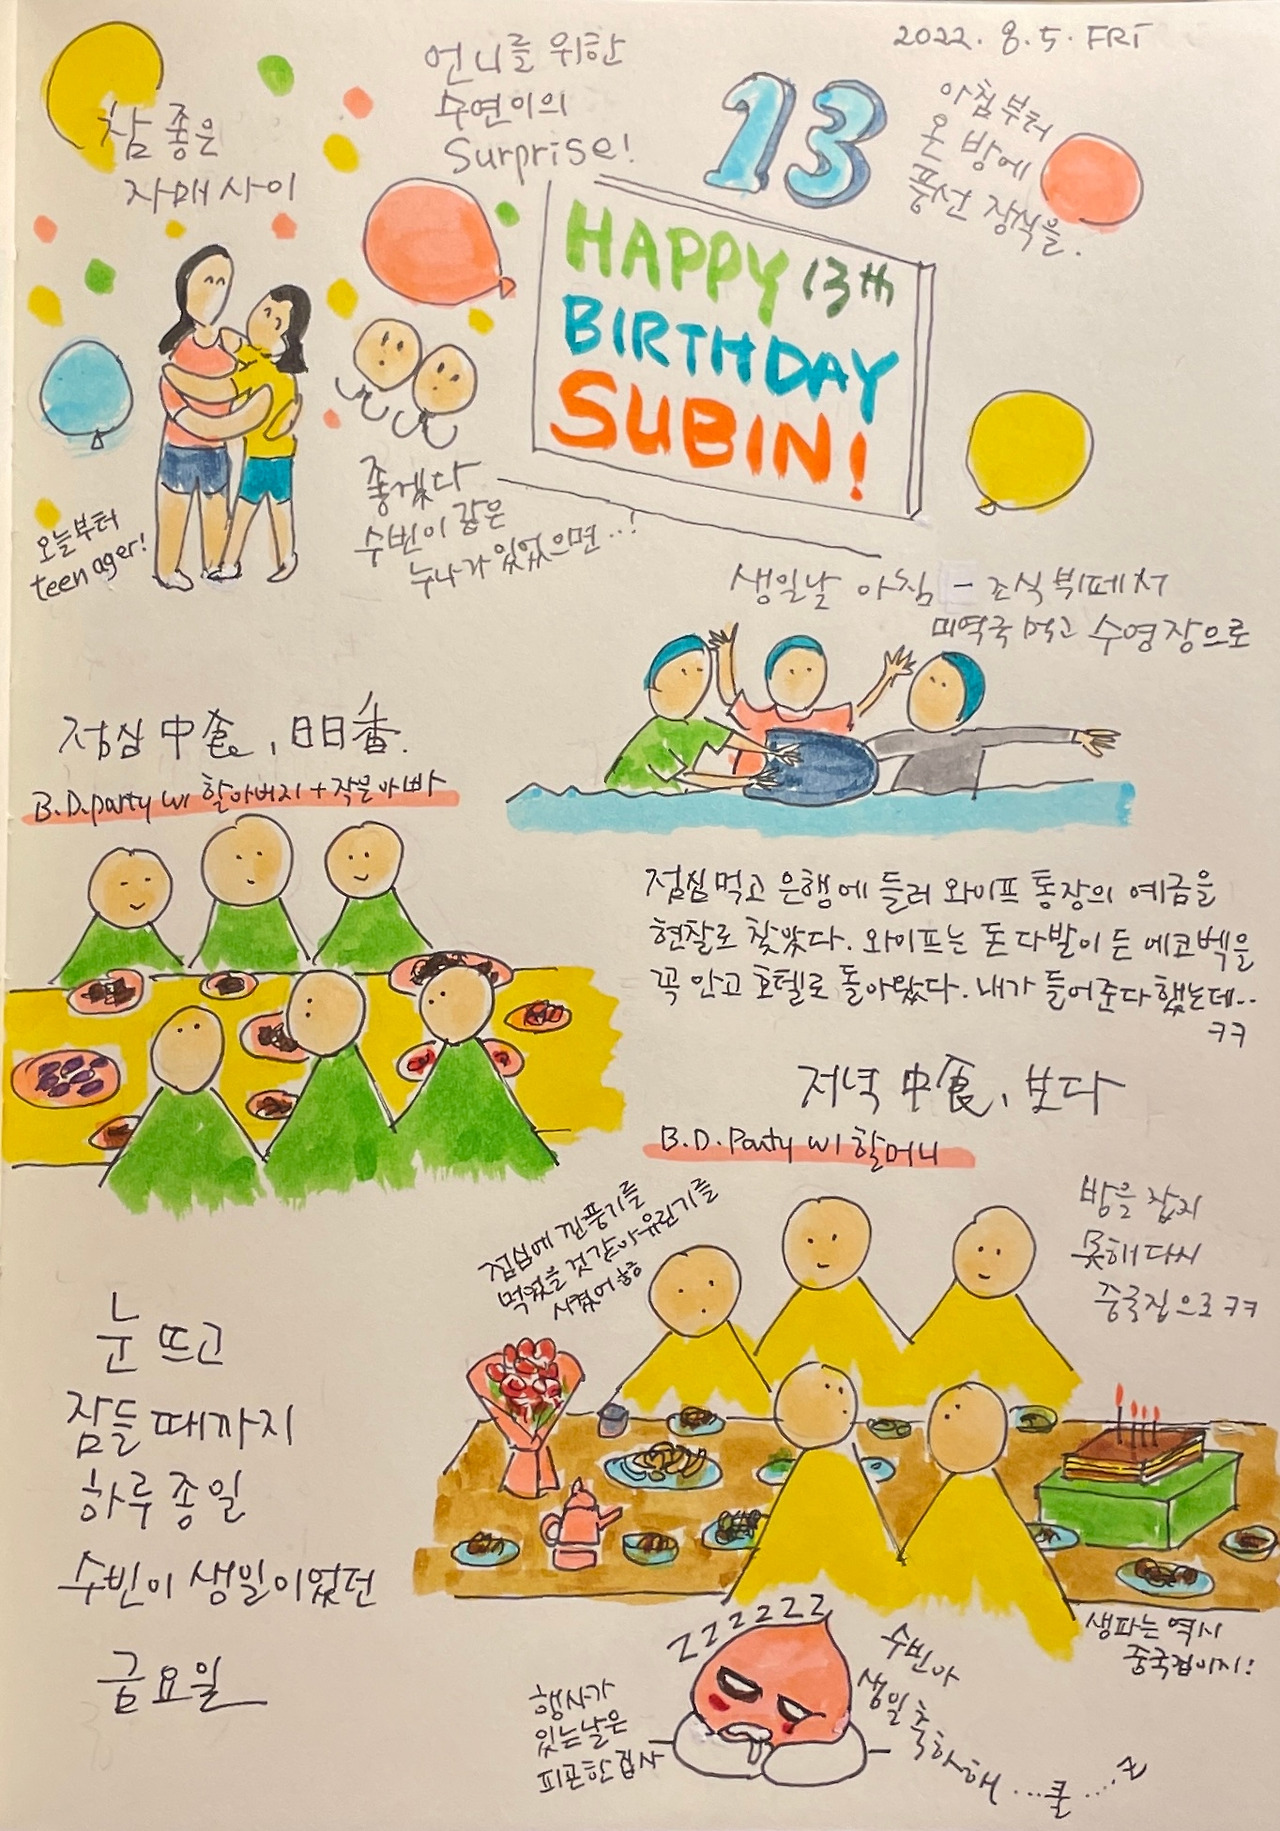 2022. 8. 5. FRI
참 좋은
자매 사이
언니를 위한
수연이의
Surprise!
13
아침부터
온 방에
풍선 장식을.
HAPPY 13th
BIRTHDAY
SUBIN!
오늘부터
teen ager!
좋겠다
수빈이 같은
누나가 있었으면..!
생일날 아침 - 조식 뷔페서
미역국 먹고 수영장으로
점심 中食, 日日香.
B.D.party w/ 할아버지 + 작은아빠
점심먹고 은행에 들러 와이프 통장의 예금을
현찰로 찾았다. 와이프는 돈다발이 든 에코백을
꼭 안고 호텔로 돌아왔다. 내가 들어준다 했는데..
ㅋㅋ
저녁 中食, 보다
B.D.Party w/ 할머니
점심에 깐풍기를
먹었을 것 같아 유린기를
시켰어 ㅎㅎ
방을 잡지
못해 다시
중국집으로 ㅋㅋ
눈 뜨고
잠들 때까지
하루 종일
수빈이 생일이었던
금요일
생파는 역시
중국집이지!
ZZZZZZZ
행사가
있는날은
피곤한 집사
수빈아
생일 축하해 ... 쿨 .... z